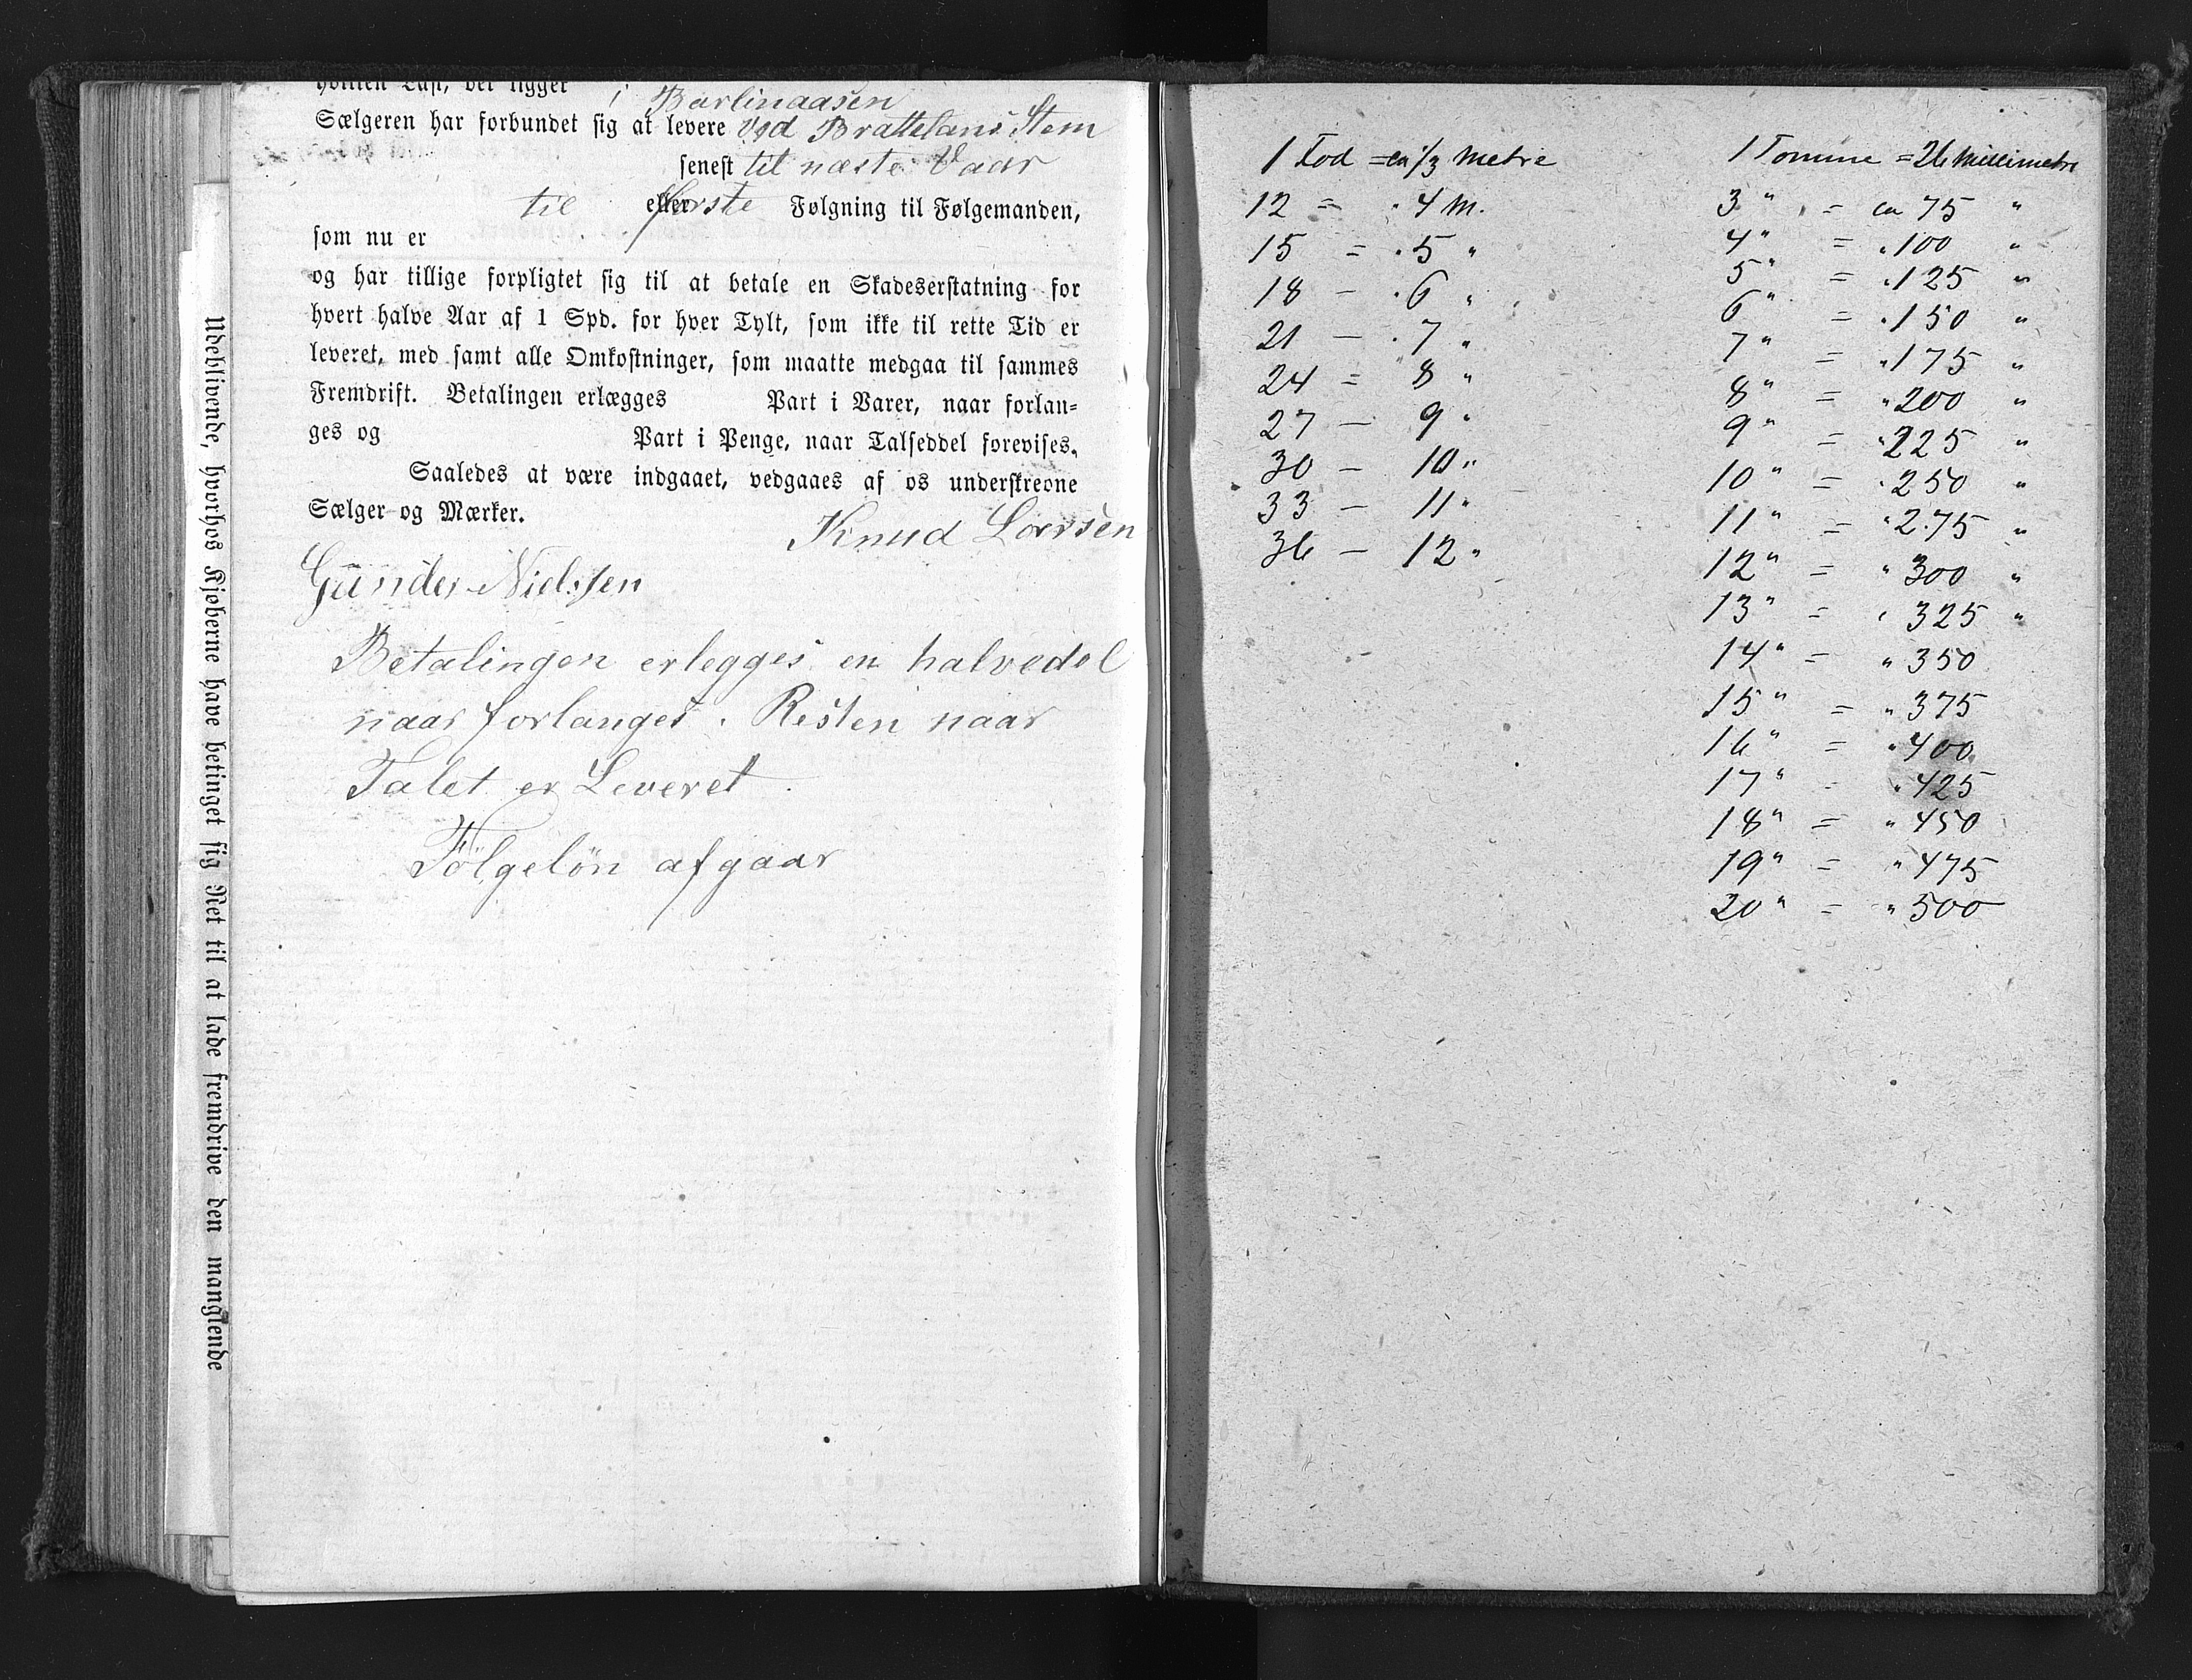 hvilken Last, der ligger i Barlinaasen
Sælgeren har forbundet sig at levere Ved Brattelans Stem
senest til næste Vaar
til eller første Følgning til Følgemanden,
som nu er
og har tillige forpligtet sig til at betale en Skadeserstatning for
hvert halve Aar af 1 Spd. for hver Tylt, som ikke til rette Tid er
leveret, med samt alle Omkostninger, som maatte medgaa til sammes
Fremdrift. Betalingen erlægges Part i Varer, naar forlan-
ges og Part i Penge, naar Talseddel forevises.
Saaledes at være indgaaet, vedgaaes af os underskrevne
Sælger og Mærker.
Knud Larsen
Gunder Nielsen
Betalingen erlegges en halvedel
naar forlanges. Resten naar
Talet er Leveret.
Følgeløn afgaar
Udeblivende, hvorhos Kjøberne have betinget sig Ret til at lade fremdrive den manglende
1 Fod = ca 1/3 Metre
12 = . 4 M.
15 = . 5 "
18 — . 6 "
21 — . 7 "
24 = 8 "
27 — 9 "
30 — 10 "
33 — 11 "
36 — 12 "
1 Tomme = 26 Millimetre
3 " = ca 75 "
4 " = " 100 "
5 " = " 125 "
6 " = " 150 "
7 " = " 175 "
8 " = " 200 "
9 " = " 225 "
10 " = " 250 "
11 " = " 275 "
12 " = " 300 "
13 " = " 325 "
14 " = " 350
15 " = " 375
16 " = " 400
17 " = " 425
18 " = " 450
19 " = " 475
20 " = " 500